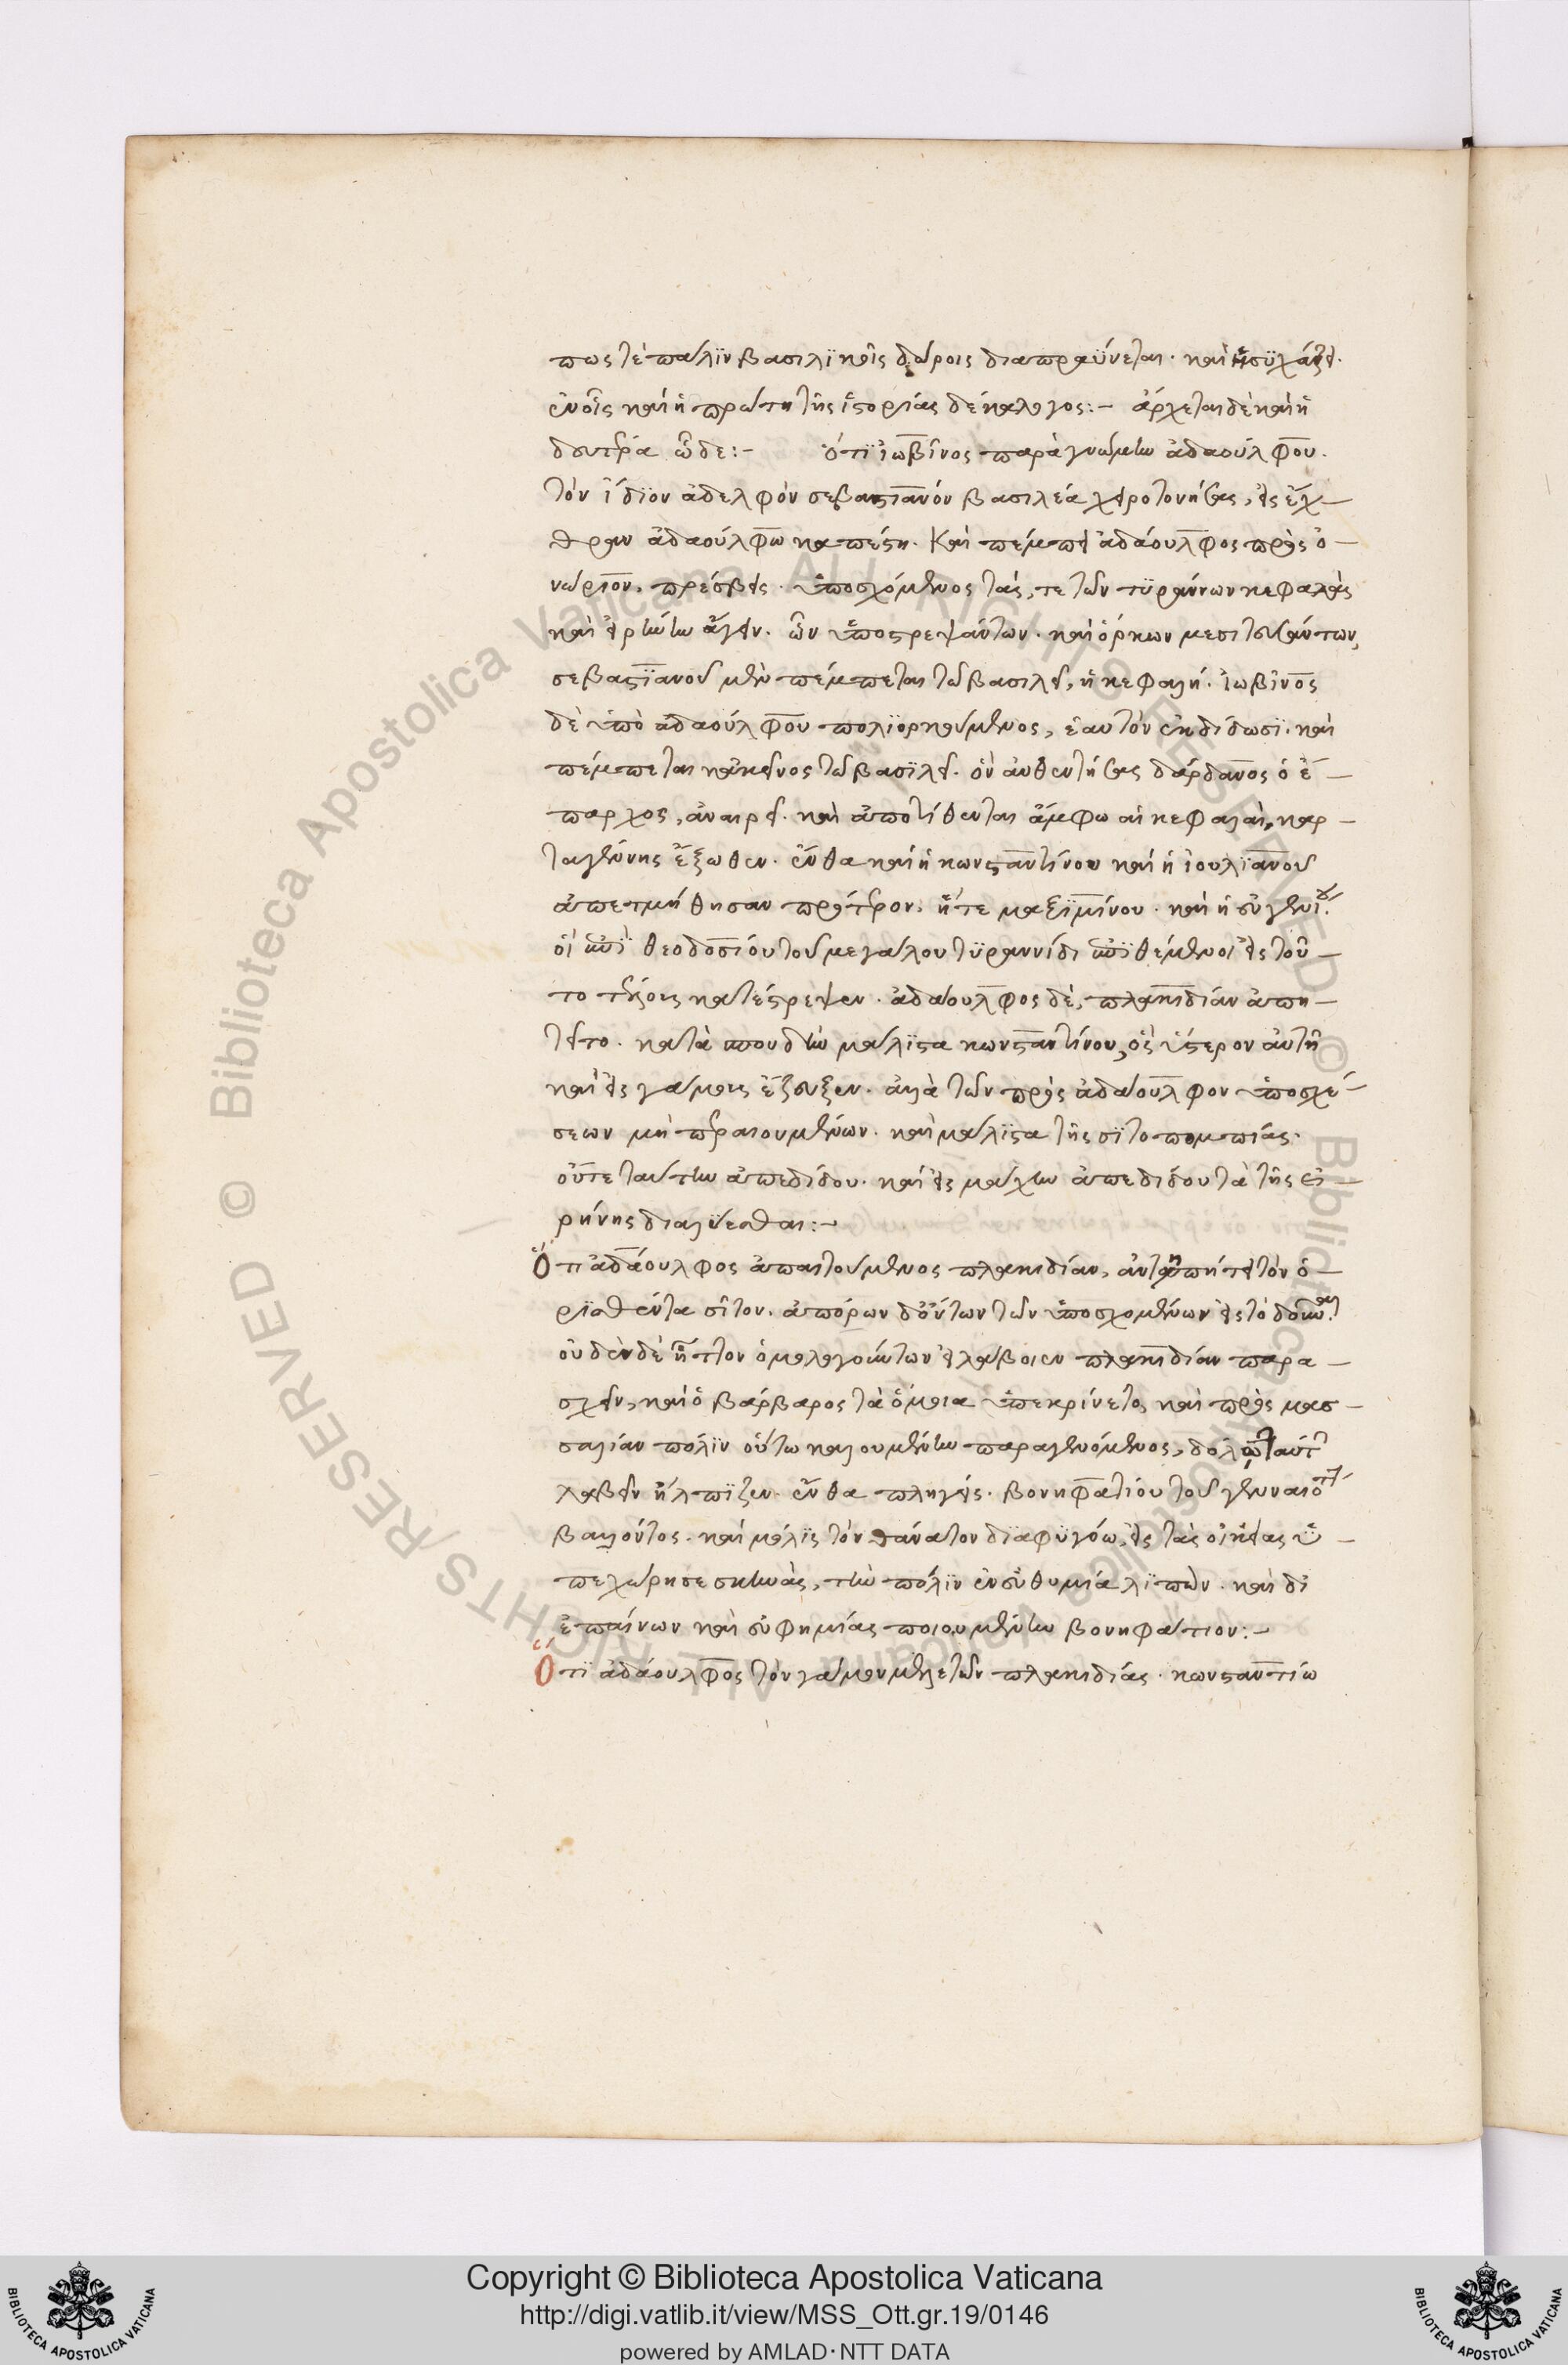 πως τὲ πάλϊν βασιλϊκοῖς δώροις διαπραΰνεται. καὶ ἡσϋχάζει.
ἐν οἷς καὶ ἡ πρώτη τῆς ἱστορίας δέκα λόγος:- ἄρχεται δὲ καὶ ἡ
δευτέρα ὧδε:- ὅτϊ ἰωβῖνος παρὰ γνώμην ἀδαούλφου.
τὸν ἴδϊον ἀδελφὸν σεβαστιανὸν βασιλέα χειροτονήσας, εἰς ἔχ-
θραν ἀδαούλφω κατέστη. Καὶ πέμπει ἀδάουλφος πρὸς ὁ-
νώριον, πρέσβεις. ὑποσχόμενος τάς, τε τῶν τϋράννων κεφαλὰς
καὶ εἰρήνην ἄγειν. ὧν ὑποστρεψάντων. καὶ ὅρκων μεσιτευσάντων,
σεβαστϊανοῦ μὲν πέμπεται τῶ βασιλεῖ, ἡ κεφαλή. ἰωβῖνος
δὲ ὑπὸ ἀδαούλφου πολϊορκούμενος, ἑαυτὸν ἐκδίδωσϊ. καὶ
πέμπεται κἀκεῖνος τῶ βασϊλεῖ. ὃν αὐθεντήσας δάρδανος ὁ ἔ-
παρχος, ἀναιρεῖ. καὶ ἀποτίθενται ἄμφω αἱ κεφαλαὶ, καρ-
ταγένης ἔξωθεν. ἔνθα καὶ ἡ κωνσταντίνου καὶ ἡ ἰουλϊανοῦ
ἀπετμήθησαν πρότερον. ἥ τε μαξϊμίνου. καὶ ἡ εὐγενίου.
οἳ ἐπῒ θεοδοσίου τοῦ μεγάλου τϋραννίδι ἐπϊθέμενοι εἰς τοῦ-
το τέλους κατέστρεψεν. ἀδάουλφος δὲ, πλακιδίαν ἀπη-
τεῖτο. κατὰ σπουδὴν μάλϊστα κωνσταντίνου, ὃς ὕστερον αὐτῆ
καὶ εἰς γάμους ἔζευξεν. ἀλλὰ τῶν πρὸς ἀδάουλφον ὑποσχέ-
σεων μὴ περαιουμένων. καὶ μάλϊστα τῆς σϊτοπομπίας.
οὔτε ταύτην ἀπεδίδου. καὶ εἰς μάχην ἀπεδίδου τὰ τῆς εἰ-
ρήνης διαλύεσθαι:-
Ὅτι ἀδάουλφος ἀπαιτούμενος πλακιδίαν, ἀνταπήτει τὸν ὁ-
ρϊσθέντα σῖτον. ἀπόρων δ' ὄντων τῶν ὑποσχομένων εἰς τὸ δοῦναι.
οὐδὲν δὲ ἧττον ὁμολογούντων εἰ λάβοιεν πλακιδίαν παρα-
σχεῖν, καὶ ὁ βάρβαρος τὰ ὅμοια ὑπεκρίνετο, καὶ πρὸς μασ-
σαλίαν πόλϊν οὕτω καλουμένην παραγενόμενος, δόλω ταύτην
λαβεῖν ἤλπϊζεν. ἔνθα πληγεὶς. βονηφατίου τοῦ γενναιοτάτου
βαλόντος. καὶ μόλϊς τὸν θάνατον δϊαφϋγὼν, εἰς τὰς οἰκείας ὑ-
πεχώρησε σκηνὰς, τὴν πόλϊν ἐν εὐθυμία λϊπὼν. καὶ δι'
ἐπαίνων καὶ εὐφημίας ποιουμένην βονηφάτιον:-
Ὅτϊ ἀδάουλφος τὸν γάμον μελετῶν πλακιδίας. κωνσταντίω
Copyright © Biblioteca Apostolica Vaticana
http://digi.vatlib.it/view/MSS_Ott.gr.19/0146
powered by AMLAD·NTT DATA